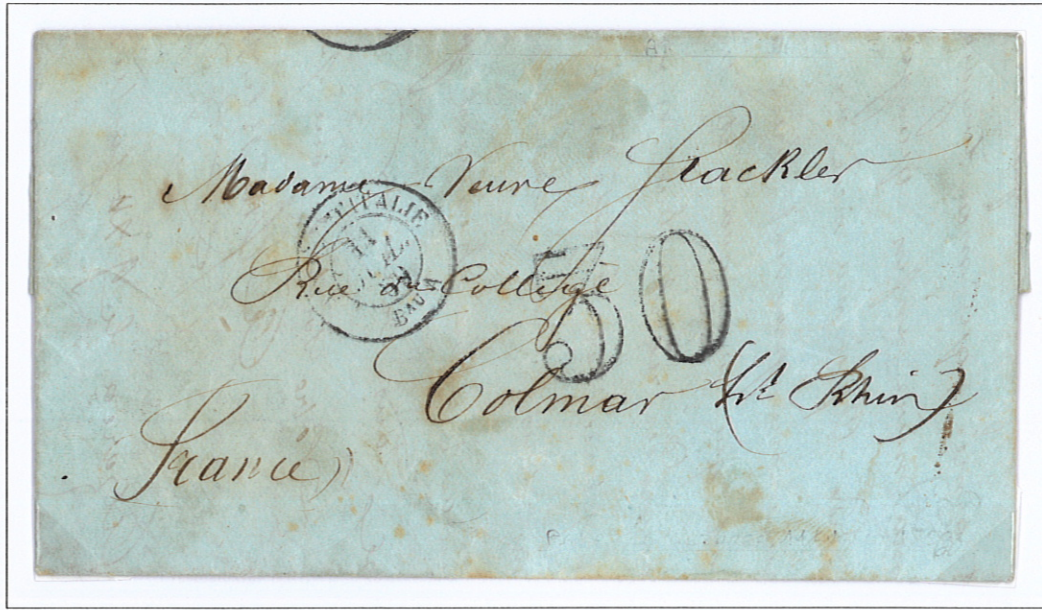 Madame Veuve
D'ITALIE
11
BAU
Rue du Collège
50
Colmar (Ht Rhin)
France